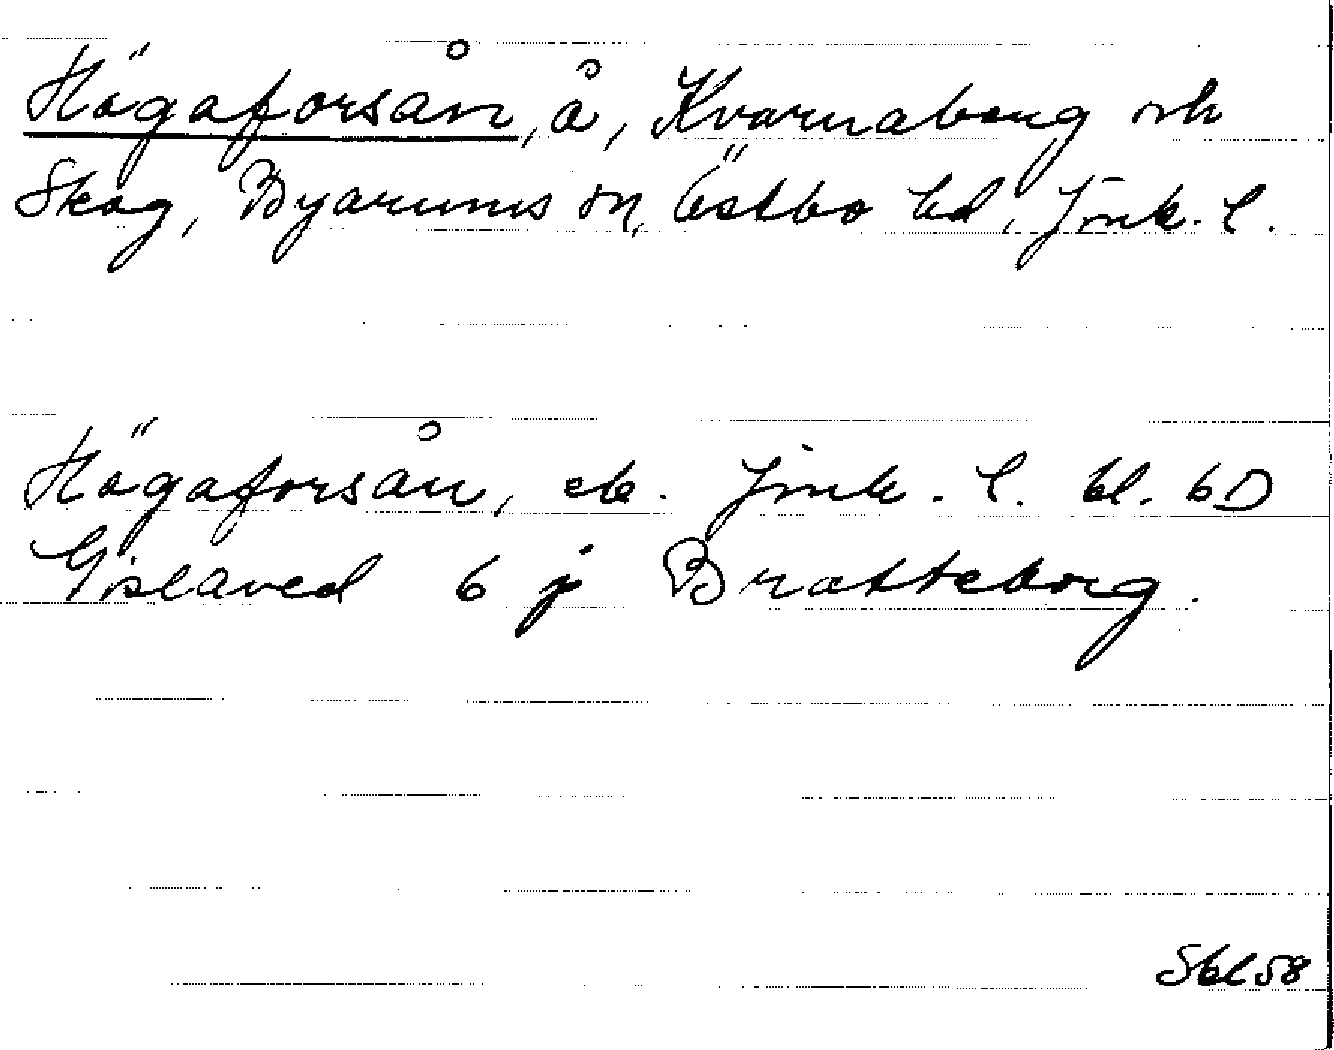 Högaforsån, å, Kvarnaberg och
Skog, Byarums sn, Östbo hd, Jönk. l.
Högaforsån, ek. Jönk. l. bl. 6D
Gislaved 6 j Bratteborg.
Sbl 58